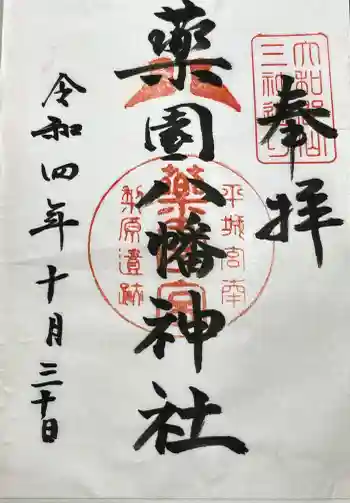 奉拝
大和郡山
三神社巡り
薬園八幡神社
平城宮南
梨原遺跡
令和四年十月三十日